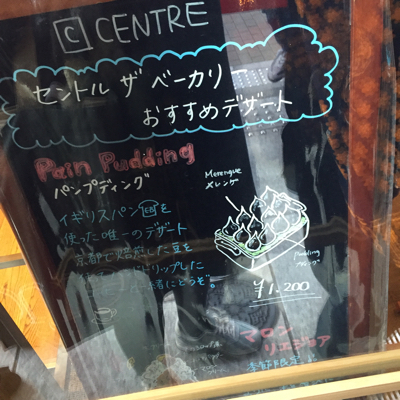 C CENTRE
セントル ザ ベーカリー
おすすめデザート
Pain Pudding
パンプディング
Merengue
メレンゲ
イギリスパンを
使った唯一のデザート
京都で焙煎した豆を
ドリップした
緒にどうぞ。
Pudding
¥1,200
マロン
リエジョア
季節限定